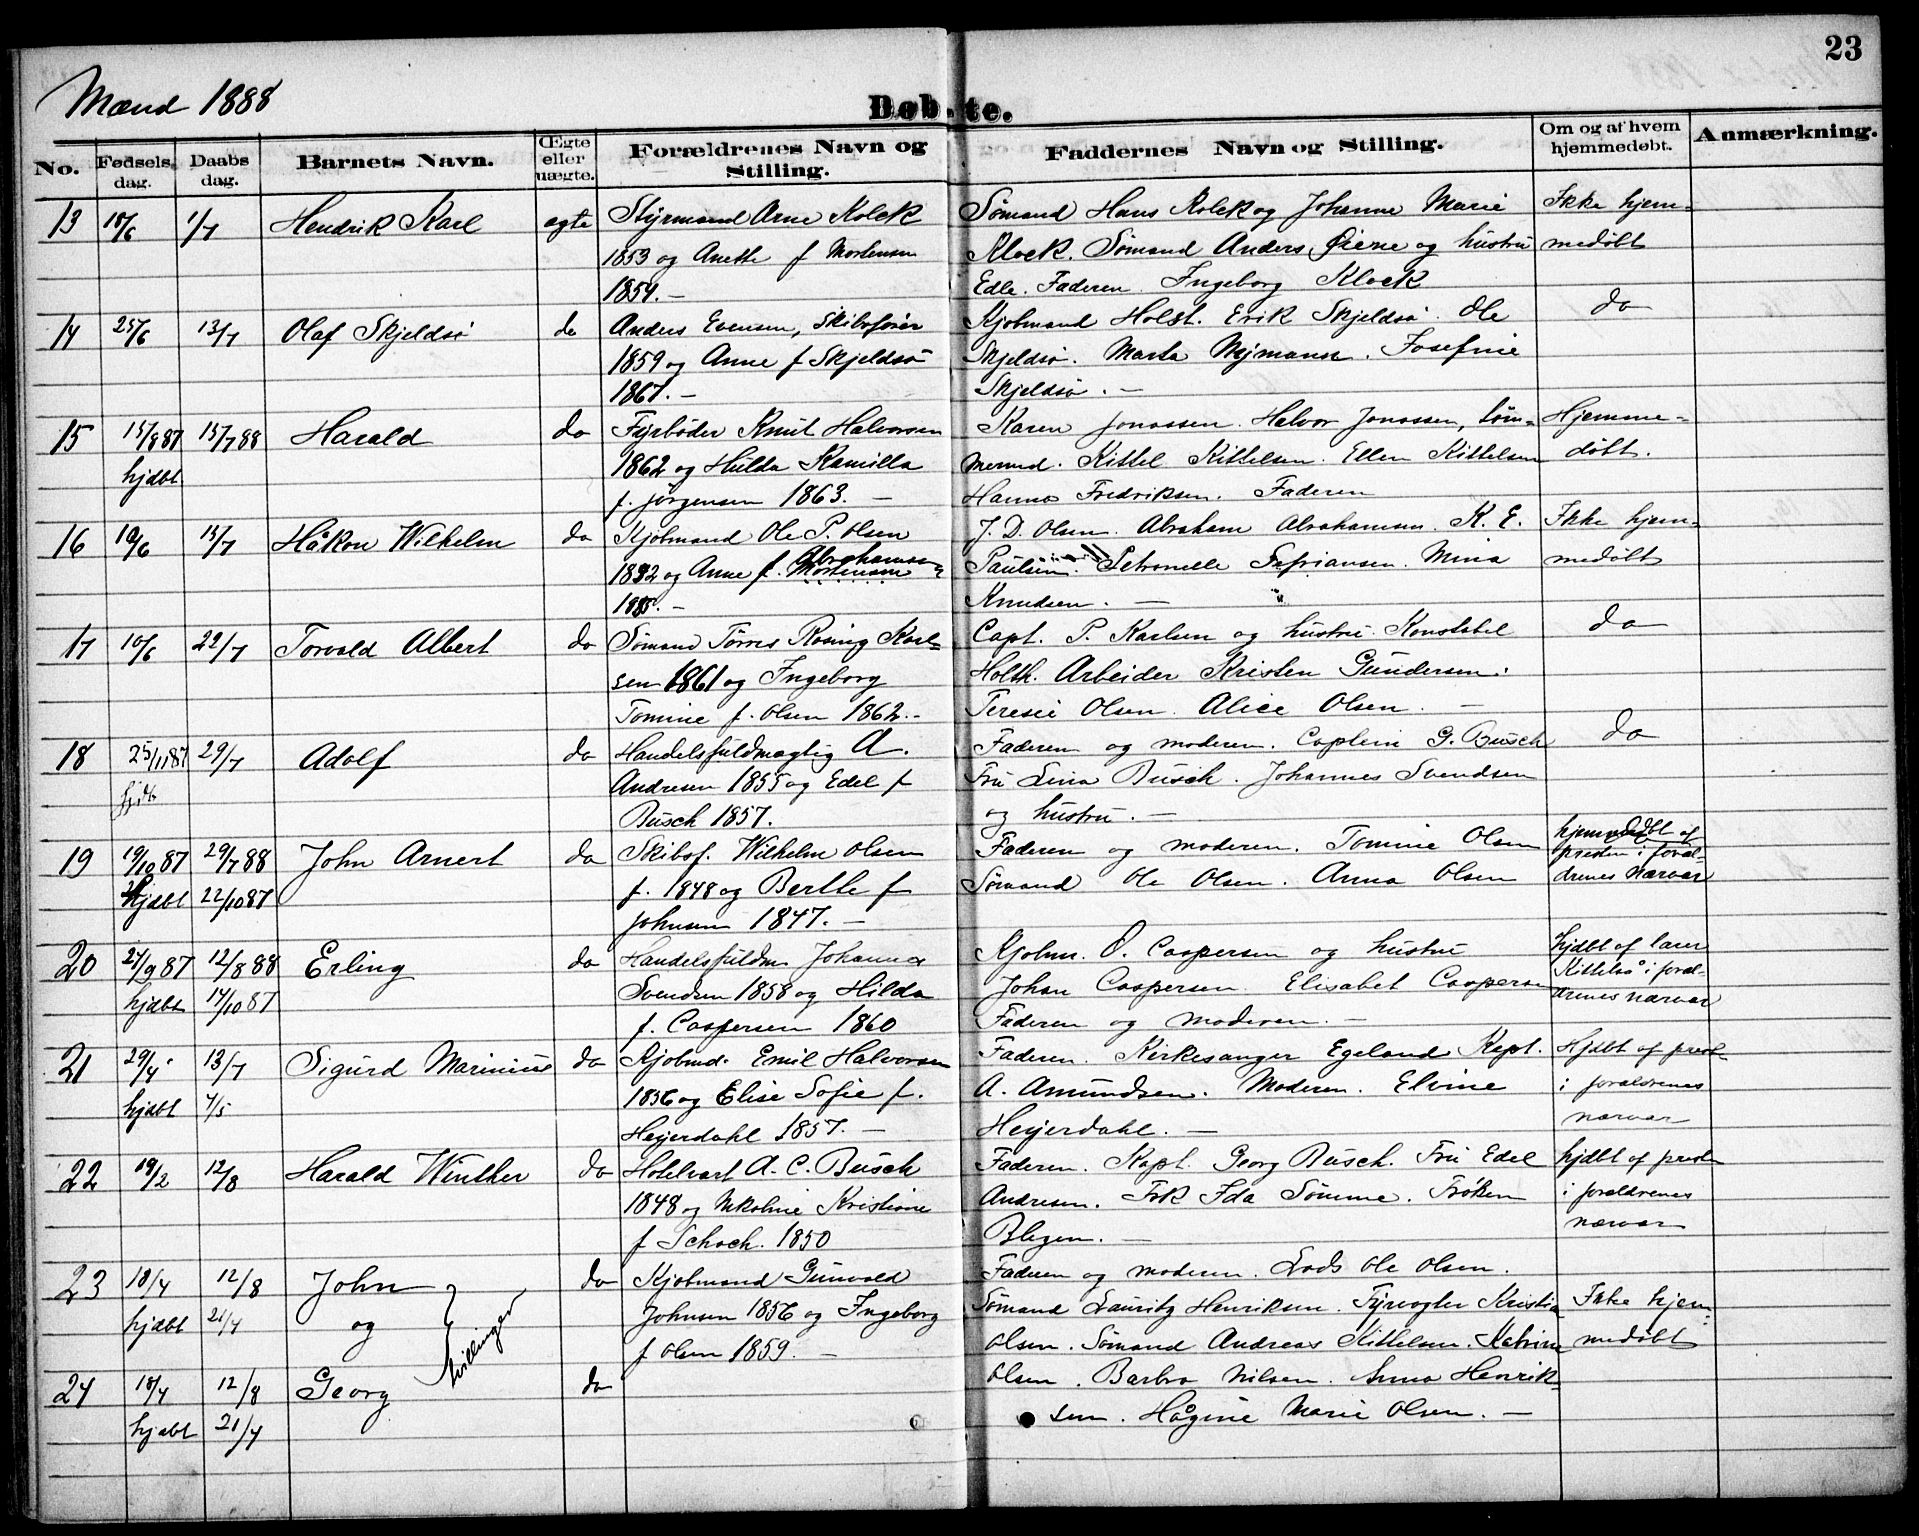 23
Mænd 1888
Døbte.
No.
Fødsels dag.
Daabs dag.
Barnets Navn.
Œgte eller uægte.
Forældrenes Navn og Stilling.
Faddernes Navn og Stilling.
Om og af hvem hjemmedøbt.
Anmærkning.
13 18/6 1/7 Hendrik Karl egte Styrmand Arne Kolck Sømand Hans Kolck og Johanne Marie Ikke hjem-
1853 og Anette f Mortensen Klock. Sømand Anders Øierne og hustru medøbt
1859. - Edle. Faderen. Ingeborg Klock
14 25/6 13/7 Olaf Skjeldsö do Anders Evensen, Skibsfører Kjøbmand Holst. Erik Skjeldsö. Ole do
1859 og Anne f Skjeldsö Skjeldsö. Marta Nymann. Josefine
1867. - Skjeldsö. -
15 15/8 87 15/7 88 Harald do Fyrbøder Knut Halvorsen Karen Jonassen. Halvor Jonassen, Tøm- Hjemme-
hjdbt 1862 og Hulda Kamilla mermd. Kittel Kittelsen. Ellen Kittelsen døbt.
f. Jørgensen 1863. - Hanna Fredriksen. Faderen
16 10/6 15/7 Håkon Wilhelm do Kjøbmand Ole P. Olsen J. D. Olsen. Abraham Abrahamsen. K. E. Ikke hjem-
1832 og Anne f. Abrahamsen Mortensen Paulsen. Petronelle Sefriansen. Mina medøbt
1885. - Knudsen. -
17 10/6 22/7 Torvald Albert do Sømand Törres Rosing Karl- Capt. P. Karlsen og hustru. Konstabel do
sen 1861 og Ingeborg Holth. Arbeider Kristen Gundersen.
Tomine f. Olsen 1862. - Teresie Olsen. Alice Olsen. -
18 25/11 87 29/7 Adolf do Handelsfuldmægtig A. Faderen og moderen. Captein G. Busch do
hjdb Andresen 1855 og Edel f Fru Lina Busch. Johannes Svendsen
Busch 1857. og hustru. -
19 19/10 87 29/7 88 John Arnert do Skibsf. Wilhelm Olsen Faderen og moderen. Tomine Olsen hjemmedøbt af
hjdbt 22/10 87 f. 1848 og Berthe f Sømand Ole Olsen. Anna Olsen presten i foræl-
Johnsen 1847. - drenes nærvær
20 21/9 87 12/8 88 Erling do Handelsfuldm Johannes Kjøbm. O. Caspersen og hustru hjdbt af lærer
hjdbt 14/10 87 Svendsen 1858 og Hilda Johan Caspersen. Elisabet Caspersen Kittelså i foræl-
f. Caspersen 1860 Faderen og moderen. - drenes nærvær
21 29/4 13/7 Sigurd Marinius do Kjøbmd. Emil Halvorsen Faderen. Kirkesanger Egeland Kapt. Hjdbt af prest
hjdbt 7/5 1856 og Elise Sofie f. A. Amundsen. Moderen. Elvine i forældrenes
Heyerdahl 1857. - Heyerdahl. - nærvær
22 19/2 12/8 Harald Winther do Hotelvært A. C. Busch Faderen. Kapt. Georg Busch. Fru Edel hjdbt af prest
1848 og Nikoline Kristiane Andresen. Frk Ida Sømme. Frøken i forældrenes
f Schoch. 1850 Blegen. - nærvær
23 18/4 12/8 John do Kjøbmand Gunvald Faderen og moderen. Lods Ole Olsen.
hjdbt 21/4 og Tvillinger Johnsen 1856 og Ingeborg Sømand Lauritz Henriksen. Fyrvogter Kristian Ikke hjem-
f Olsen 1859. - Olsen. Sømand Andreas Kittelsen. Katrine medøbt
24 18/4 12/8 Georg do Olsen. Barbra Nilsen. Anna Henrik-
hjdbt 21/4 sen. Hågine Marie Olsen. -